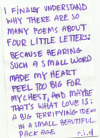 I FINALLY UNDERSTAND
WHY THERE ARE SO
MANY POEMS ABOUT
FOUR LITTLE LETTERS:
BECAUSE HEARING
SUCH A SMALL WORD
MADE MY HEART
FEEL TOO BIG FOR
MY CHEST, AND MAYBE
THAT'S WHAT LOVE IS:
A BIG TERRIFYING IDEA
IN A SMALL BEAUTIFUL
PACKAGE